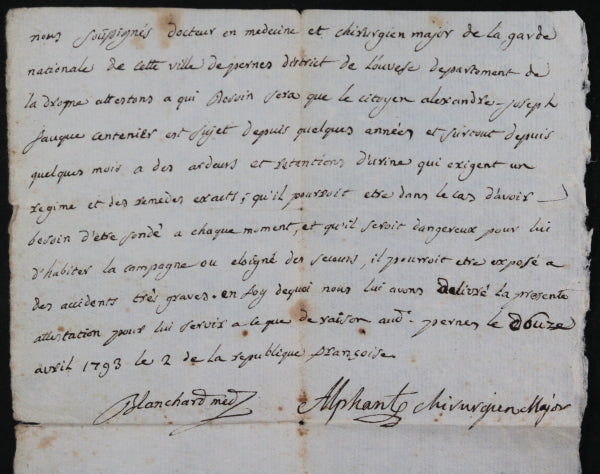 nous soussignés docteur en medecine et chirurgien major de la garde
nationale de cette ville de pernes district de Louvese departement de
la drome attestons a qui Besoin sera que le citoyen alexandre-joseph
sauque centenier est sujet depuis quelques années et surtout depuis
quelques mois a des ardeurs et retentions d'urine qui exigent un
regime et des remèdes exacts; qu'il pourroit etre dans le cas d'avoir
besoin d'etre sondé a chaque moment, et qu'il seroit dangereux pour lui
d'habiter la campagne ou eloigné des secours, il pourroit etre exposé a
des accidents très graves. en foy dequoi nous lui avons Delivré la presente
attestation pour lui servir a ce que de raison aud. pernes le Douze
avril 1793 le 2 de la republique françoise
Blanchard med Alphant chirurgien Major